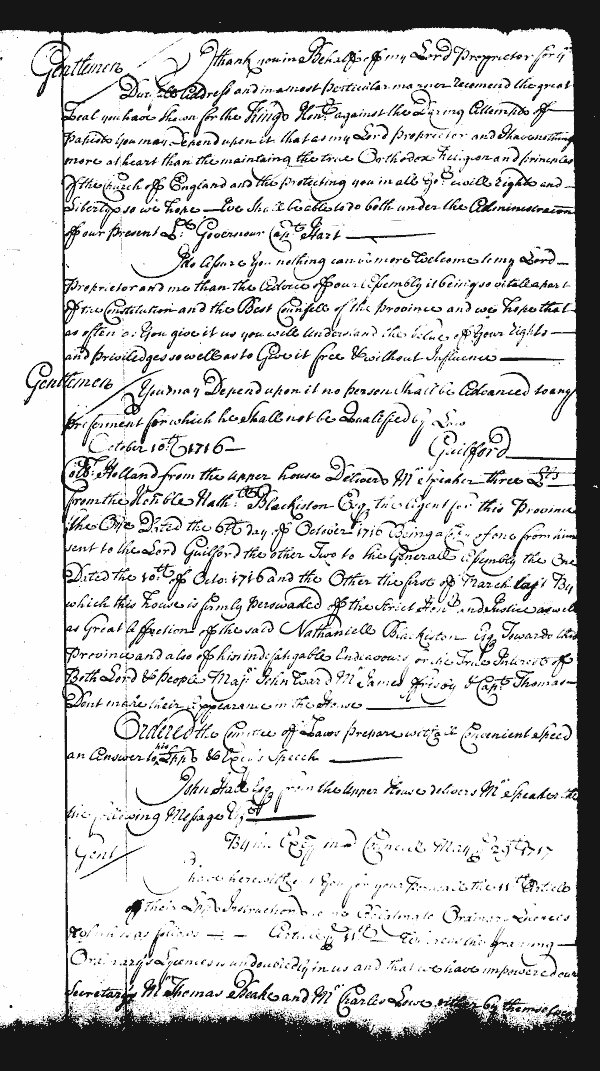 Gentlemen
I thank you in Behalf off my Lord Proprietor for yr
Dutifull Address and in a most particular manner recomend the great
Zeal you have shewn for the Kings Honr against the Daring Attempts off
Papists You may Depend upon it that as my Lord Proprietor and I have nothing
more at heart than the maintaing the true Orthodox Religion and princiles
off the Church off England and the protecting you in all yor Civill Rights and
Libertys so we hope We shall be able to do both under the Administracon
off our Present Lt Governour Capt Hart
I do Assure You nothing can be more Welcome to my Lord
Proprietor and me than the Advice off our Assembly it being so vitall a part
off the Constitution and the Best Counsell of the Province and we hope that
as often as You give it us you will Understand the Value of Your Rights
and Priviledges so well as to Give it free & without Influence
Gentlemen
You may Depend upon it no person Shall be Advanced to any
preferment for which he shall not be Qualified by Law
October 10th 1716 Guilford
Collo Holland from the upper house Delivers Mr Speaker three Lrs
from the Honble Nathll Blackiston Esqr the Agent for this Province
the One Dated the 6th day off October 1716 Being a Copy of one from him
sent to the Lord Guilford the other Two to the Generall Assembly the One
Dated the 10th off Octor 1716 and the Other the first of March last By
which this House is firmly Perswaded off the Strict Honr and Justice as well
as Great Affection off the said Nathaniell Blackiston Esqr Towards this
Province and also off his indefatigable Endeavours for the True Interests off
Both Lord & People Majr John Ward Mr James Frisby & Capt Thomas
Dont make their appearance in the House
Ordered the Comittee off Laws prepare with all Convenient Speed
an Answer to his Ldpps & Excys Speech
John Hall Esqr from the Upper House delivers Mr Speaker the
the following Message Vizt
By his Excy in Councill May 29th 1717
Gent
I have herewith sent You for your Perusall the 11th Article
off their Ldps Instructions to me relating to Ordinary Lycences
which is as follows Article ye 11th Whereas the granting
Ordinary Lycences is undoubtedly in us and that we have impowered our
Secretarys Mr Thomas Beake and Mr Charles Lowe either by themselves